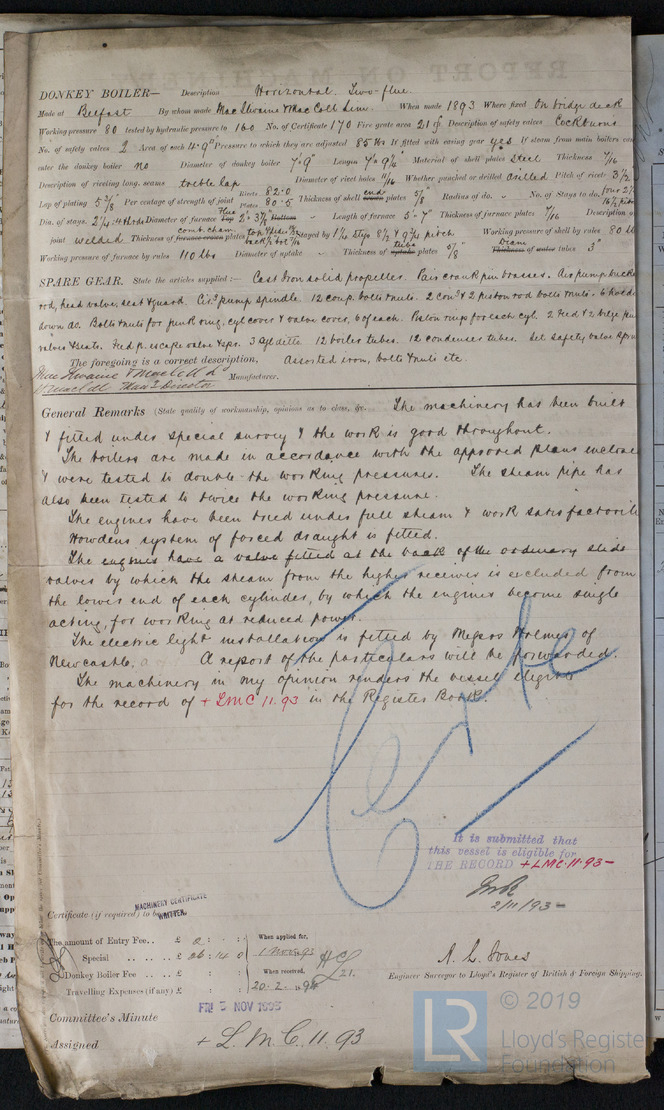 DONKEY BOILER— Description Horizontal Two-flue
Made at Belfast By whom made MacIlwaine & MacColl Lim. When made 1893 Where fixed On bridge deck
Working pressure 80 tested by hydraulic pressure to 160 No. of Certificate 170 Fire grate area 21 Description of safety valves Cockburns
No. of safety valves 2 Area of each 4.9 Pressure to which they are adjusted 85 lbs If fitted with easing gear yes If steam from main boilers can
enter the donkey boiler no Diameter of donkey boiler 7'9" Length Material of shell plates Steel Thickness 7/16
Description of riveting long. seams treble lap Diameter of rivet holes 11/16 Whether punched or drilled drilled Pitch of rivets 3 1/2
Lap of plating 5 3/8 Per centage of strength of joint Rivets 82.0 Plates 80.5 Thickness of shell end plates 5/8 Radius of do. No. of Stays to do.
Dia. of stays. 2 1/4 Diameter of furnace Flue 2' 3 1/2" Length of furnace 5'-7" Thickness of furnace plates 7/16 Description of
joint welded Thickness of comb. cham. plates Stayed by 1 1/4 stays 8 1/2 x 9 3/4 pitch Working pressure of shell by rules 80 lb
Working pressure of furnace by rules 110 lbs Diameter of uptake Thickness of tube plates 5/8 Diam tubes 3"
SPARE GEAR. State the articles supplied:— Cast Iron solid propeller. Pair crank pin brasses. Air pump bucket
rod, head valve, seat & guard. Cir. pump spindle. 12 coup. bolts & nuts. 2 con. & 2 piston rod bolts & nuts. 6 holding
down do. Bolts & nuts for junk ring, cyl cover & valve cover, 6 of each. Piston rings for each cyl. 2 Feed & 2 bilge pump
valves & seats. Feed p. escape valve & spr. 3 cyl ditto 12 boiler tubes. 12 condenser tubes. Set safety valve springs
The foregoing is a correct description, Assorted iron, bolts & nuts etc.
MacIlwaine & MacColl Ld
Director Manufacturer.
General Remarks (State quality of workmanship, opinions as to class, &c. The machinery has been built
& fitted under special survey & the work is good throughout.
The boilers are made in accordance with the approved plans enclosed
& were tested to double the working pressures. The steam pipe has
also been tested to twice the working pressure.
The engines have been tried under full steam & work satisfactorily
Howdens system of forced draught is fitted.
The engines have a valve fitted at the back of the ordinary slide
valves by which the steam from the higher receiver is excluded from
the lower end of each cylinder, by which the engines become single
acting, for working at reduced power.
The electric light installation is fitted by Messrs Holmes of
Newcastle. A report of the particulars will be forwarded.
The machinery in my opinion renders the vessel eligible
for the record of + LMC 11.93 in the Register Book.
It is submitted that
this vessel is eligible for
THE RECORD + LMC. 11.93 —
2/11/93 —
MACHINERY CERTIFICATE
WRITTEN.
Certificate (if required) to be
The amount of Entry Fee.. £ 2 : : When applied for,
Special .. .. .. £ 26 : 14 : 0 1 Nov 93
Donkey Boiler Fee .. .. £ : : When received,
Travelling Expenses (if any) £ : : 20. 2. 1894 21.
A. L. Jones
Engineer Surveyor to Lloyd's Register of British & Foreign Shipping.
FRI 3 NOV 1893
Committee's Minute
Assigned + L. M. C. 11. 93
LR © 2019
Lloyd's Register
Foundation